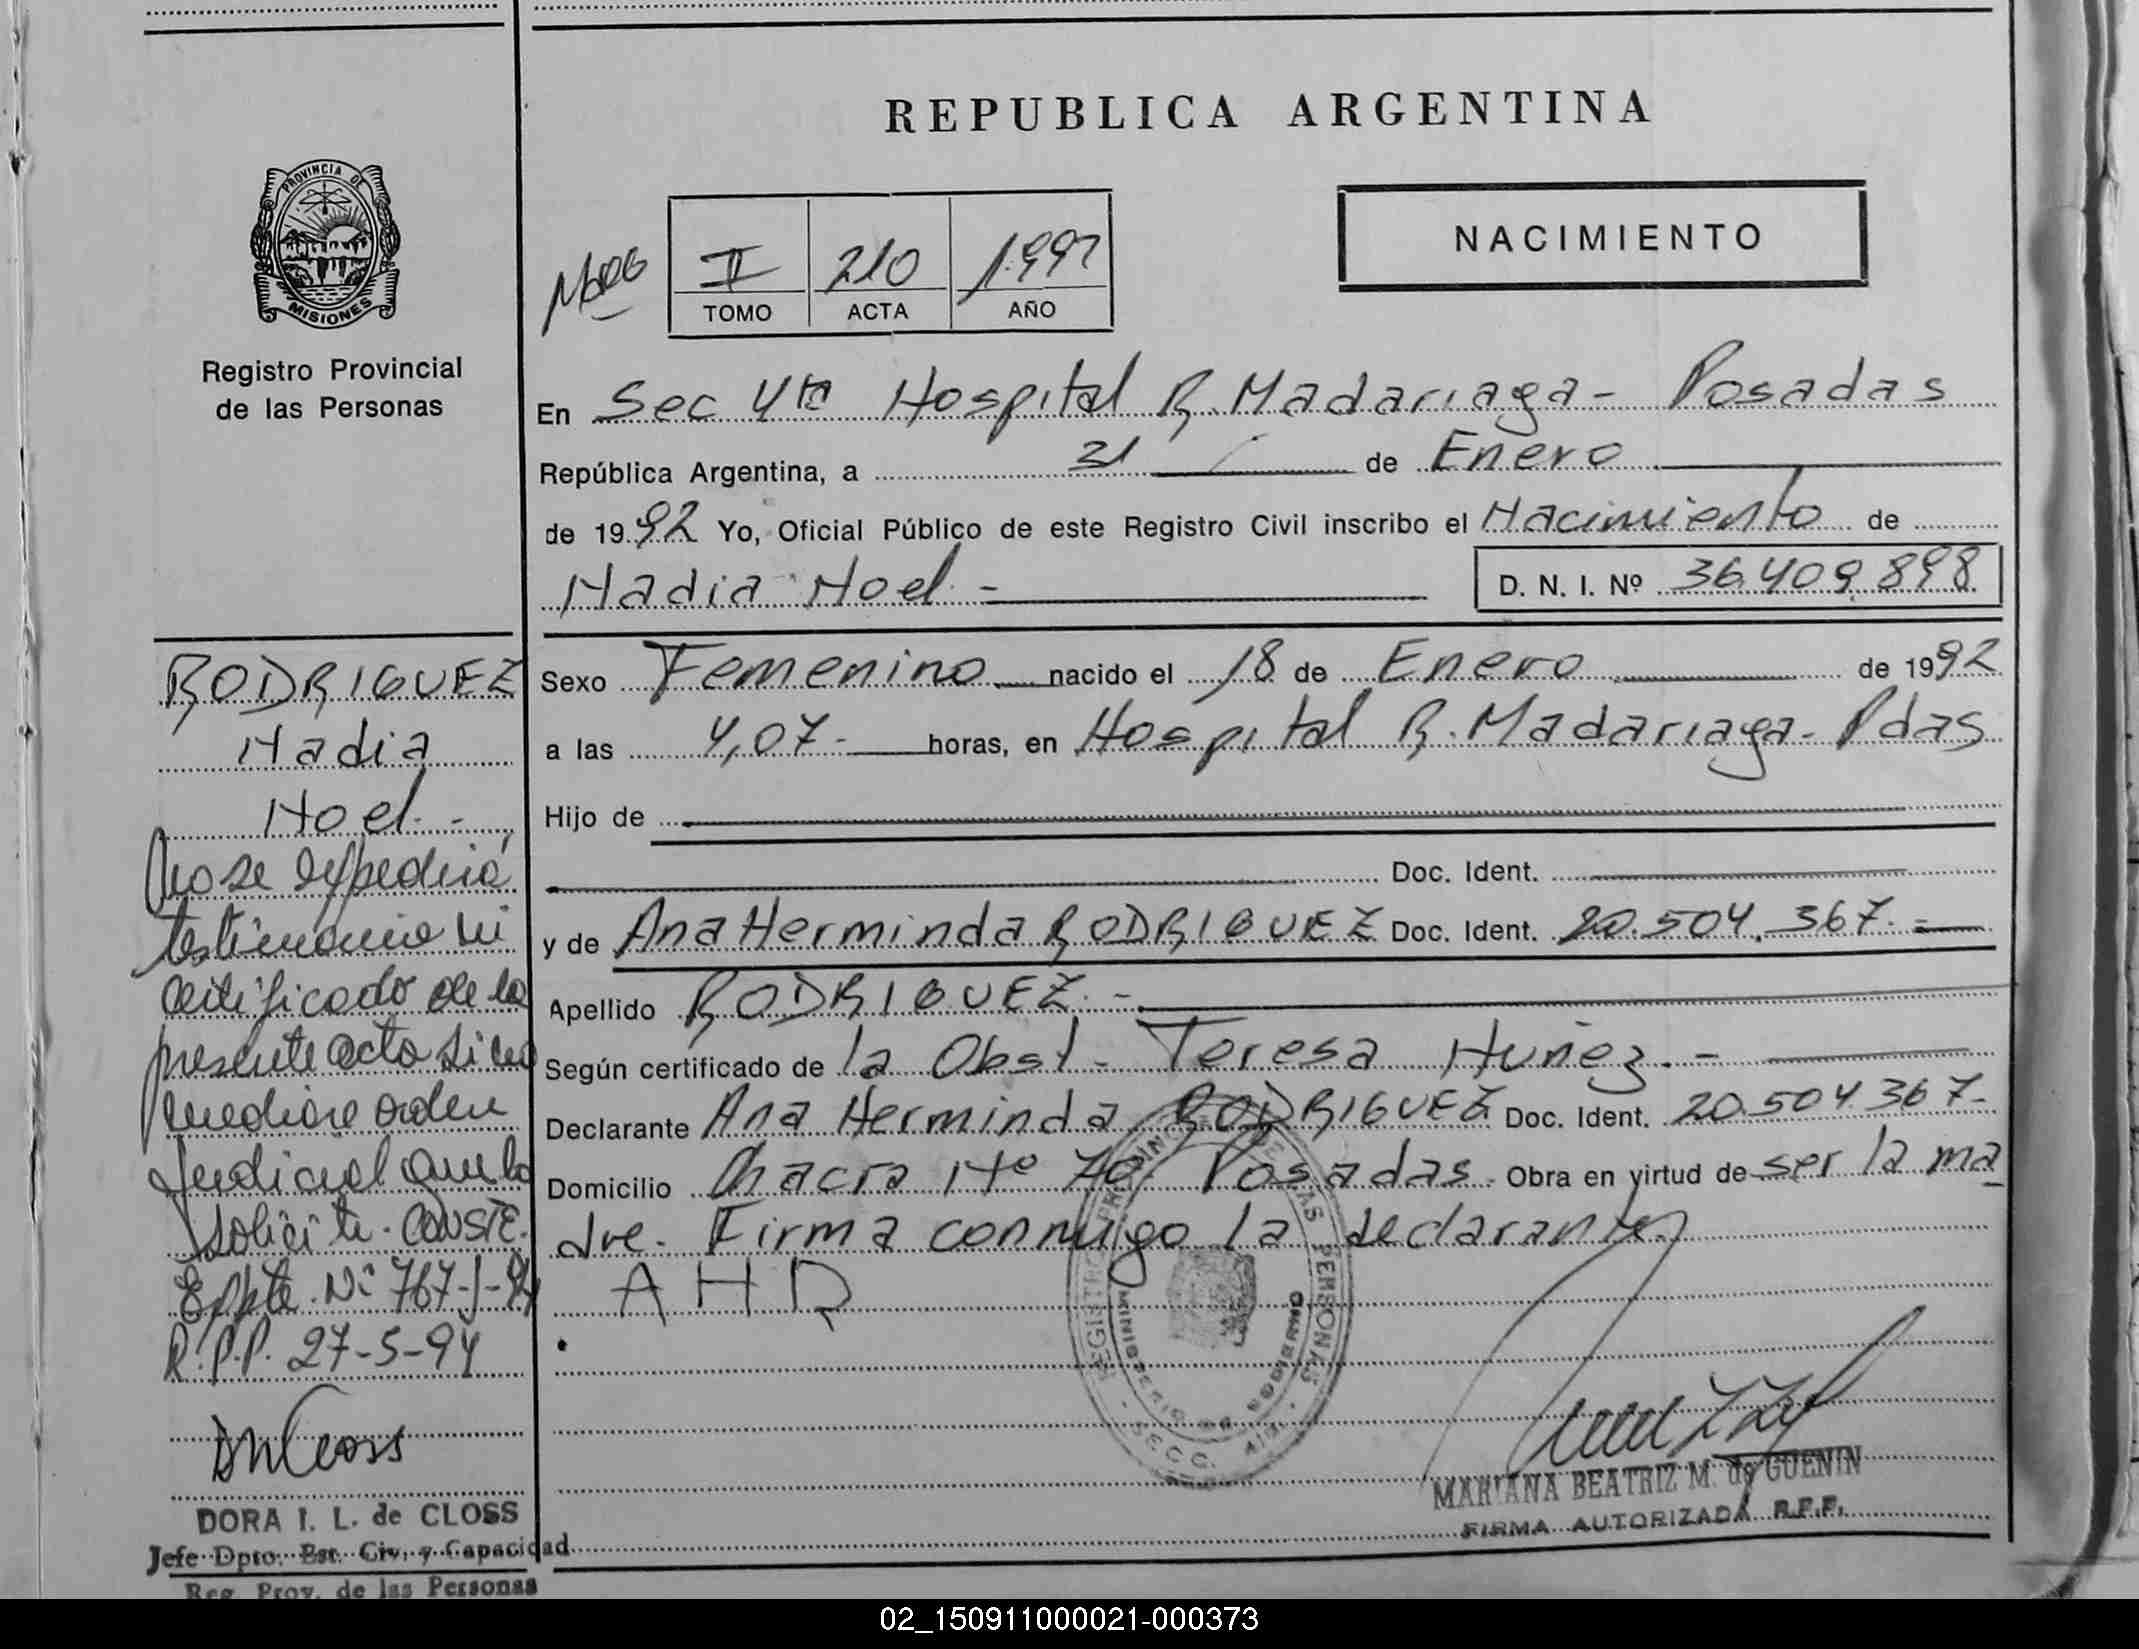 REPUBLICA ARGENTINA
PROVINCIA DE
MISIONES
Registro Provincial
de las Personas
NACIMIENTO
II 210 1992
TOMO ACTA AÑO
En Sec 4ta Hospital R. Madariaga - Posadas
República Argentina, a 31 de Enero
de 1992 Yo, Oficial Público de este Registro Civil inscribo el Nacimiento de
Nadia Noel - D. N. I. Nº 36.409.898
RODRIGUEZ
Nadia
Noel -
No se expedirá
testimonio ni
certificado de la
presente acta si no
mediare orden
Judicial que lo
solicite. CONSTE.
Expte. Nº 767-J-94
R.P.P. 27-5-94
DORA I. L. de CLOSS
Jefe Dpto. Est. Civ. y Capacidad
Reg. Prov. de las Personas
Sexo Femenino nacido el 18 de Enero de 1992
a las 4,07- horas, en Hospital R. Madariaga - Pdas
Hijo de
Doc. Ident.
y de Ana Herminda RODRIGUEZ Doc. Ident. 20.504.367.-
Apellido RODRIGUEZ.-
Según certificado de la Obst- Teresa Nuñez.-
Declarante Ana Herminda RODRIGUEZ Doc. Ident. 20.504.367-
Domicilio Chacra Nº 70- Posadas. Obra en virtud de ser la ma
dre. Firma conmigo la declarante.
AHR
MINISTERIO DE GOBIERNO
MARIANA BEATRIZ M. de GUENIN
FIRMA AUTORIZADA R.P.P.
02_150911000021-000373